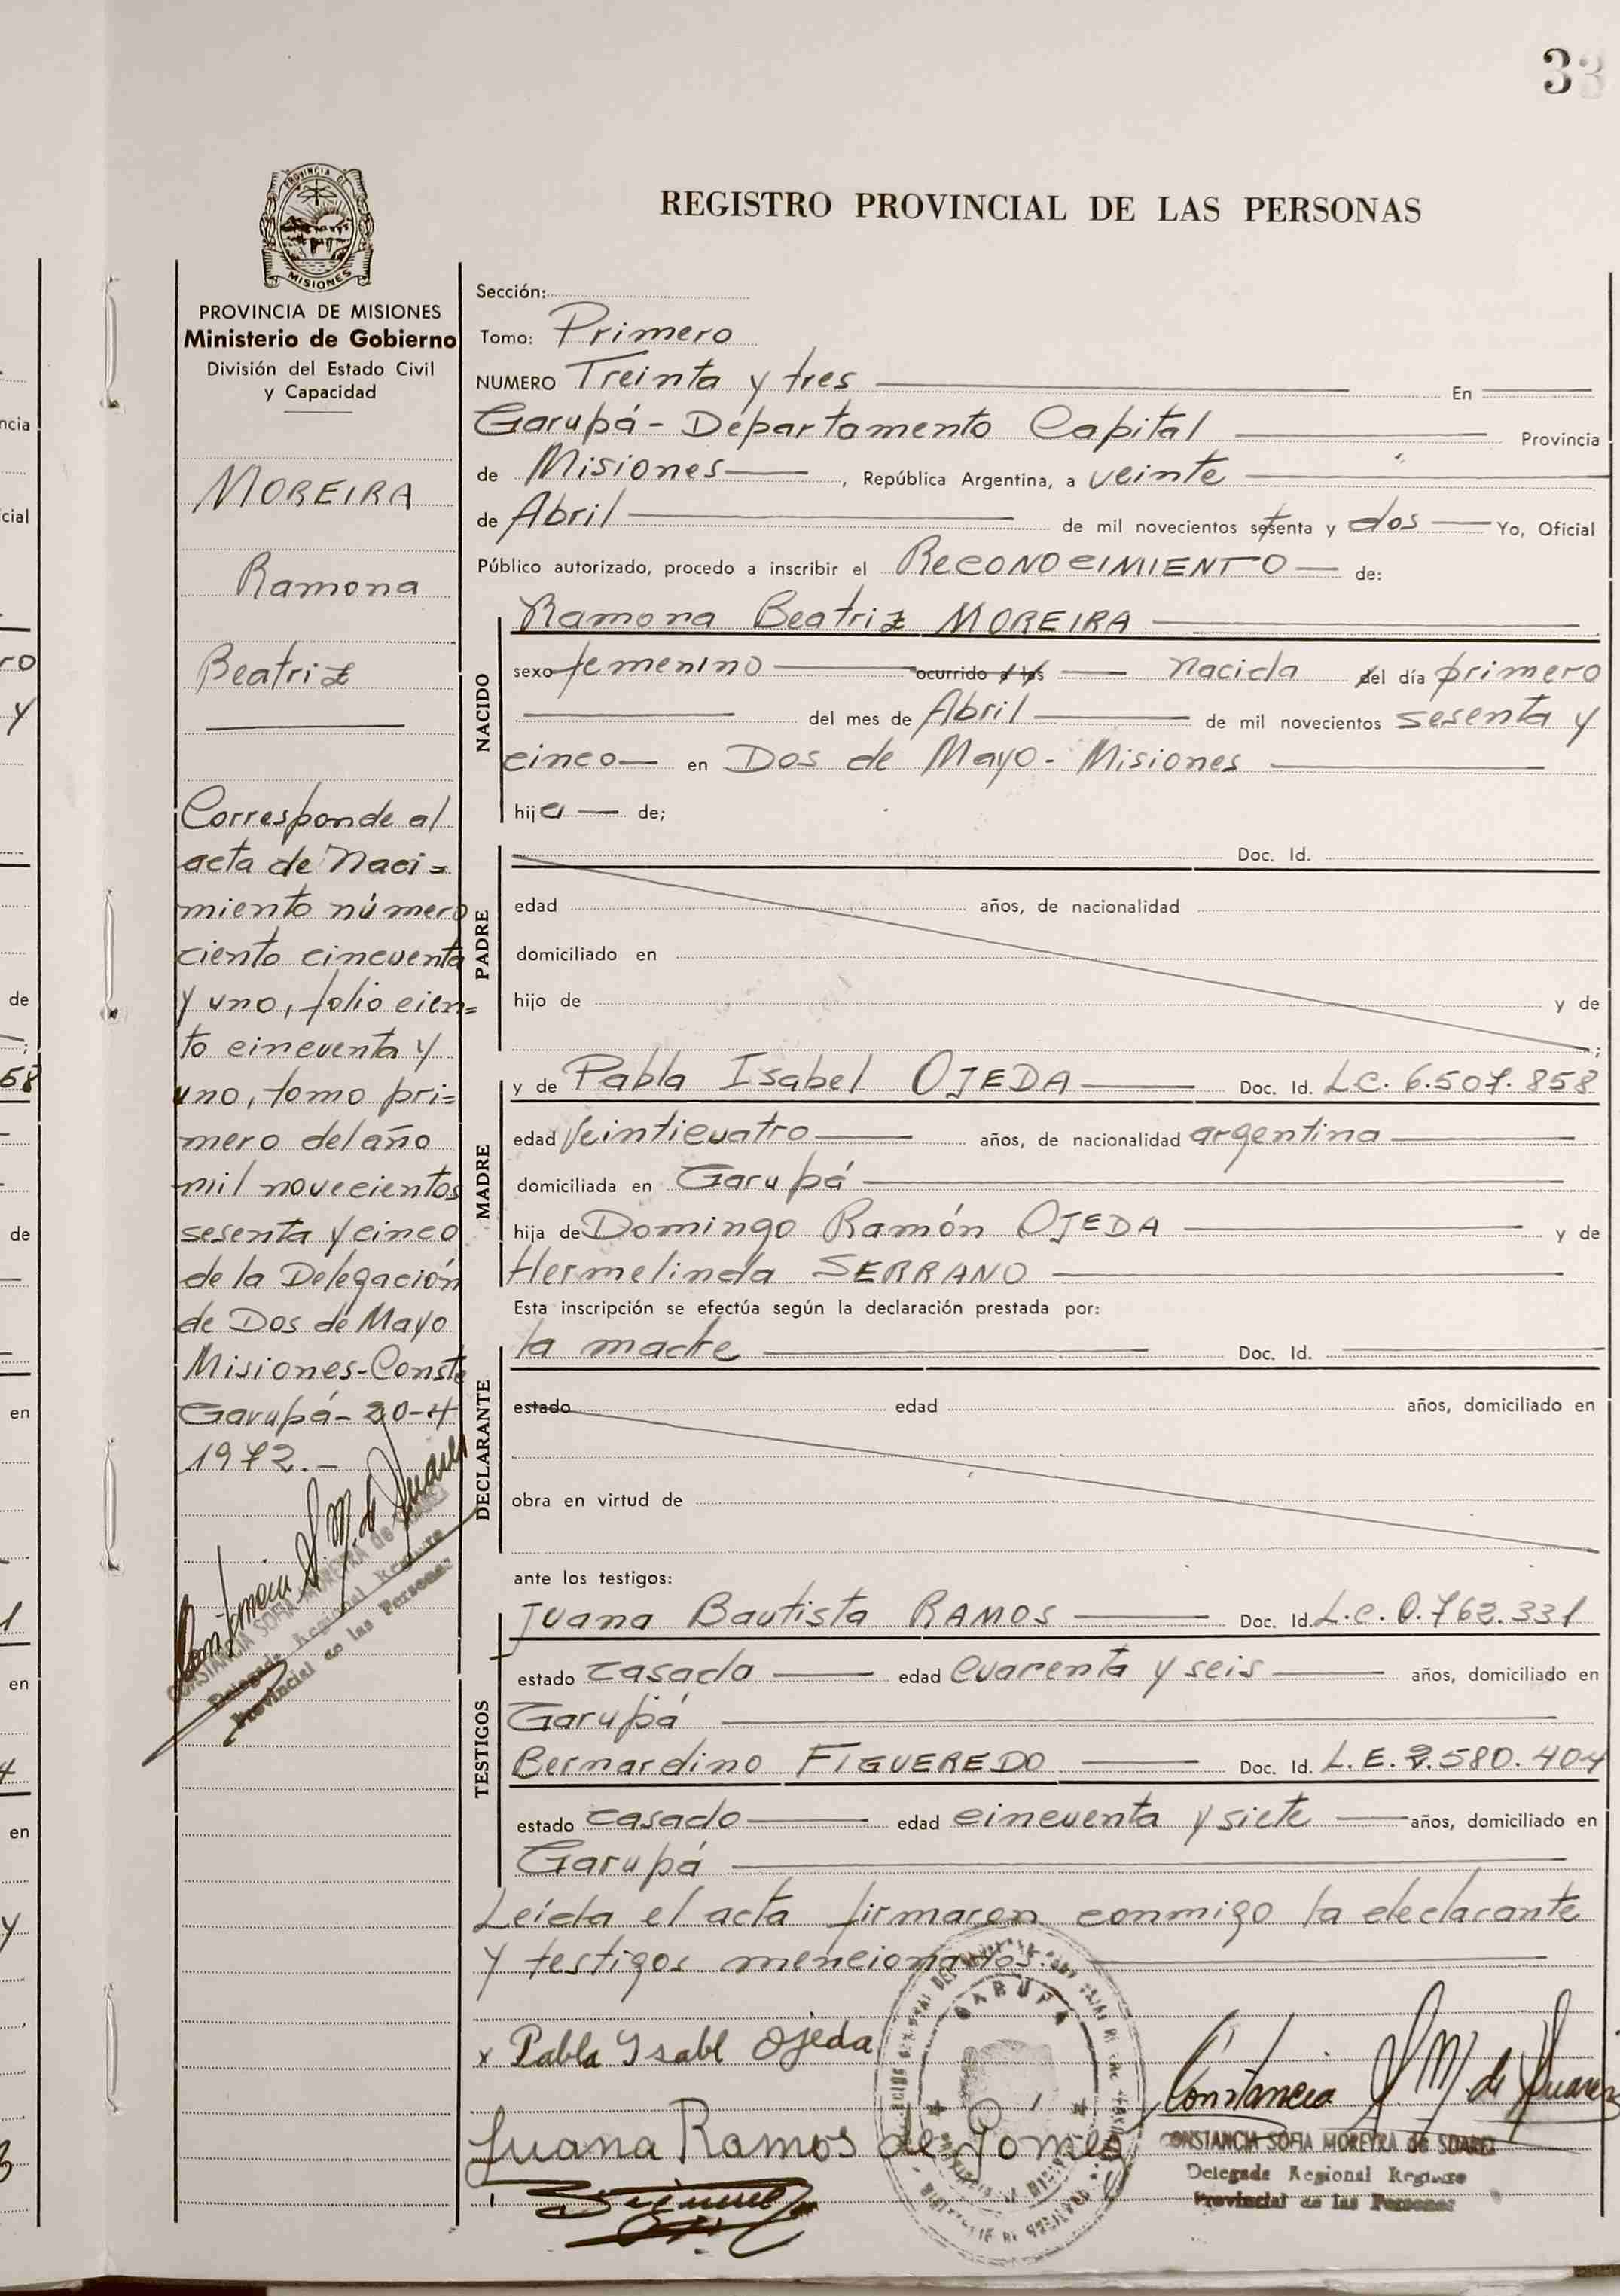 33
REGISTRO PROVINCIAL DE LAS PERSONAS
PROVINCIA DE
MISIONES
PROVINCIA DE MISIONES
Ministerio de Gobierno
División del Estado Civil
y Capacidad
MOREIRA
Ramona
Beatriz
Corresponde al
acta de Naci=
miento número
ciento cincuenta
y uno, folio cien=
to cincuenta y
uno, tomo pri=
mero del año
mil novecientos
sesenta y cinco
de la Delegación
de Dos de Mayo
Misiones-Conste
Garupá-20-4
1972.-
Constancia S. M. de Suarez
CONSTANCIA SOFIA MOREYRA de SUAREZ
Delegada Regional Registro
Provincial de las Personas
Sección:
Tomo: Primero
NUMERO Treinta y tres En
Garupá - Departamento Capital Provincia
de Misiones, República Argentina, a veinte
de Abril de mil novecientos setenta y dos Yo, Oficial
Público autorizado, procedo a inscribir el RECONOCIMIENTO de:
NACIDO
Ramona Beatriz MOREIRA
sexo femenino ocurrido a las nacida el día primero
del mes de Abril de mil novecientos sesenta y
cinco en Dos de Mayo - Misiones
hija de;
PADRE
Doc. Id.
edad años, de nacionalidad
domiciliado en
hijo de y de
;
MADRE
y de Pabla Isabel OJEDA Doc. Id. L.C. 6.507.858
edad Veinticuatro años, de nacionalidad argentina
domiciliada en Garupá
hija de Domingo Ramón OJEDA y de
Hermelinda SERRANO
Esta inscripción se efectúa según la declaración prestada por:
DECLARANTE
la madre Doc. Id.
estado edad años, domiciliado en
obra en virtud de
ante los testigos:
TESTIGOS
Juana Bautista RAMOS Doc. Id. L.C. 0.762.331
estado casada edad cuarenta y seis años, domiciliado en
Garupá
Bernardino FIGUEREDO Doc. Id. L.E. 2.580.404
estado casado edad cincuenta y siete años, domiciliado en
Garupá
Leída el acta firmaron conmigo la declarante
y testigos mencionados.
GARUPA
x Pabla Ysabl Ojeda
Constancia S. M. de Suarez
Juana Ramos de Gomes
CONSTANCIA SOFIA MOREYRA de SUAREZ
Delegada Regional Registro
Provincial de las Personas